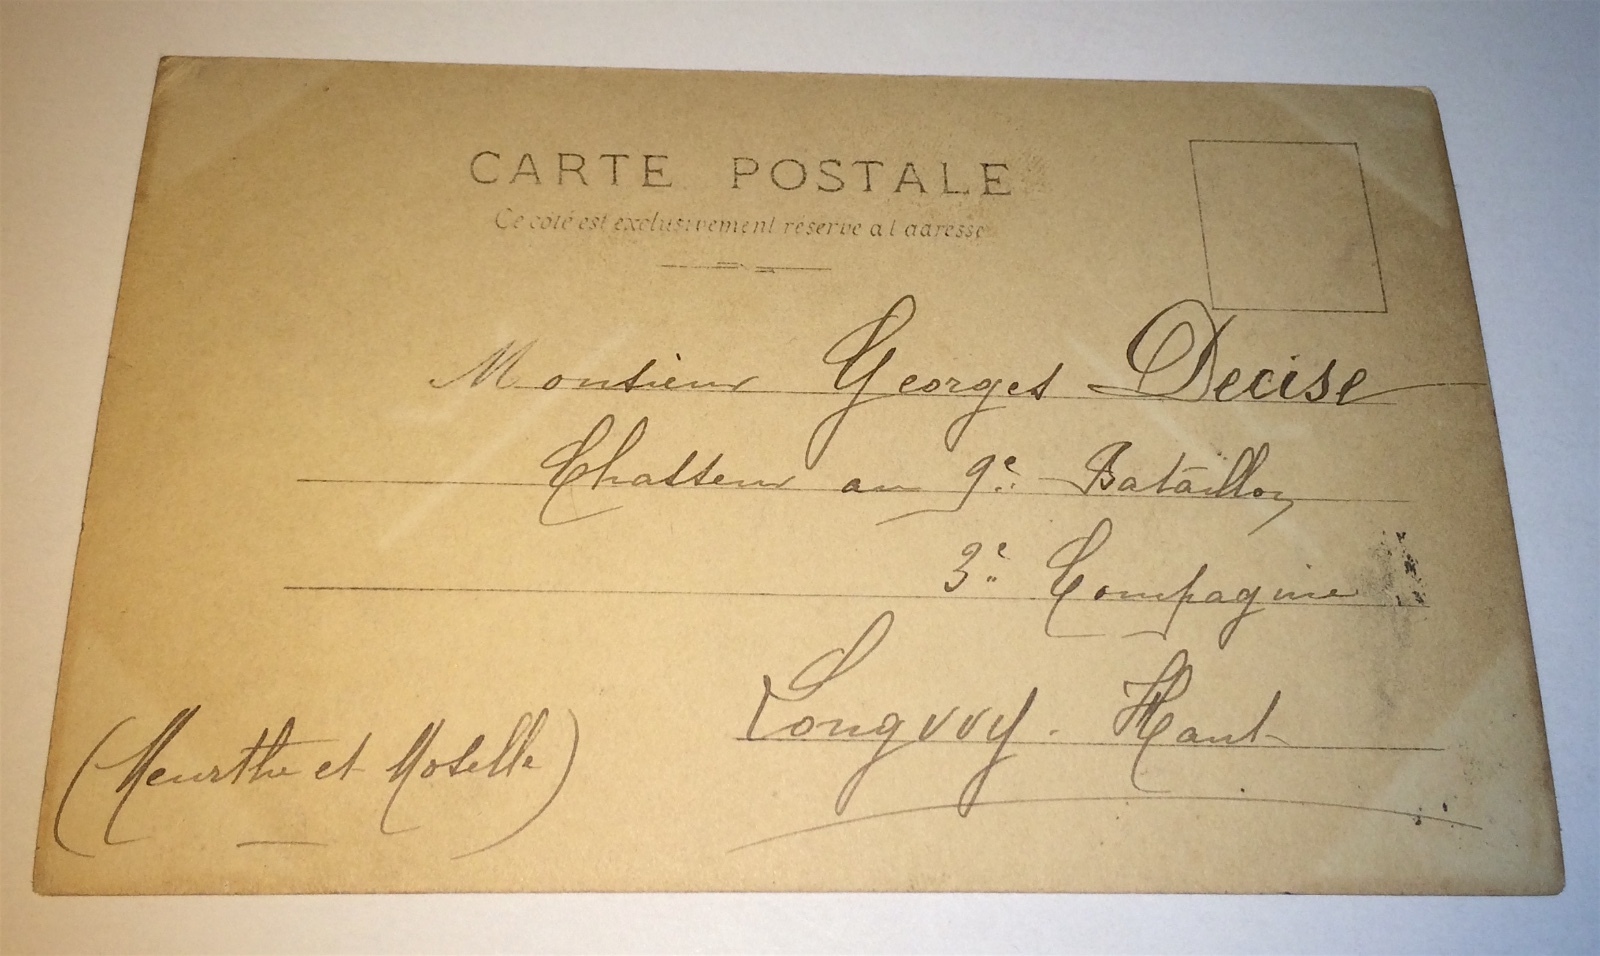 CARTE POSTALE
Ce côté est exclusivement réservé à l'adresse
Monsieur Georges Decise
Chasseur au 9e Bataillon
3e Compagnie
Longwy-Haut
(Meurthe et Moselle)